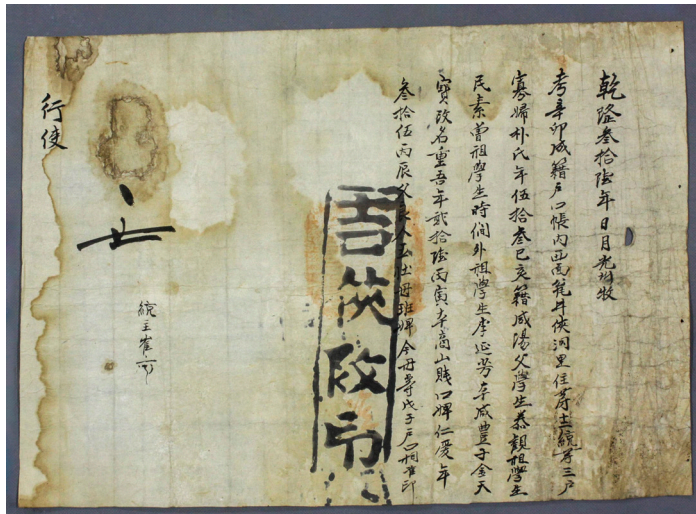 乾隆叁拾陸年 日 月 光州牧
考辛卯成籍戶口帳內西面 井俠洞里住 統 三戶
寡婦朴氏年伍拾叁己亥籍咸陽父學生恭觀祖學生
民素曾祖學生時 外祖學生李延芳本咸豊子金天
寶改名重吾年貳拾陸丙寅本商山賤口婢仁愛年
叁拾伍丙辰父 仕母班婢今 戊子戶口 准印
周挾改印
行使
統主崔